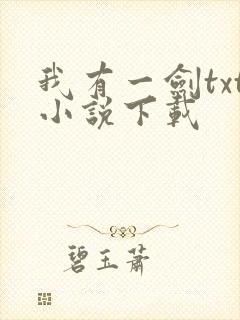 我有一劍txt
小說下載
碧玉蕭